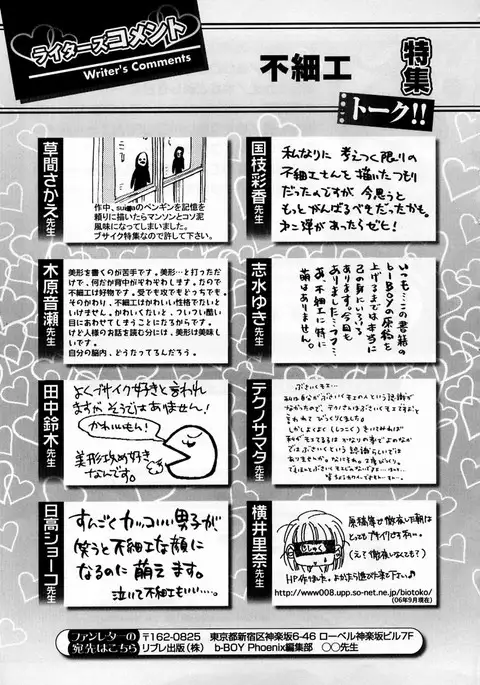 ライターズコメント
Writer's Comments
不細工
特集
トーク!!
草間さかえ先生
作中、suicaのペンギンを記憶を
頼りに描いたらマンソンとコソ泥
風味になってしまいました。
ブサイク特集なので許して下さい。
国枝彩香先生
私なりに考えつく限りの
不細工さんを描いたつもり
だったのですが 今思うと
もっとがんばるべきだったかも。
木原音瀬先生
美形を書くのが苦手です。美形…と打っただけ
で、何だか背中がぞわぞわします。なので
不細工は好物です。受でも攻でもどっちでも。
そのかわり、不細工はかわいい性格でないと
いけません。かわいくないと、ついつい酷い
目にあわせてしまうことになるからです。
けど人様のお話を読む分には、美形は美味し
いです。
自分の脳内、どうなってるんだろう。
志水ゆき先生
いつも…この書籍の
b-BOYの原稿を
上げるまでは本当に
己の身にいろいろ
あります。今回も
ありました…フフ…
あ、不細工に特に
萌はありません。
田中鈴木先生
よくブサイク好きと言われ
ますがそうではありません!
かわいいもん!
美形攻め好き
なんです。
テクノサマタ先生
ぶさいくモエ…
日高ショーコ先生
すんごくカッコいい男子が
笑うと不細工な顔に
なるのに萌えます。
泣いて不細工もいい…。
横井里奈先生
原稿明け徹夜した朝は
とってもブサイクです。
(え?徹夜しなくても?)
http://www008.upp.so-net.ne.jp/biotoko/
(06年9月現在)
ファンレターの
宛先はこちら
〒162-0825 東京都新宿区神楽坂6-46 ローベル神楽坂ビル7F
リブレ出版(株) b-BOY Phoenix編集部 〇〇先生